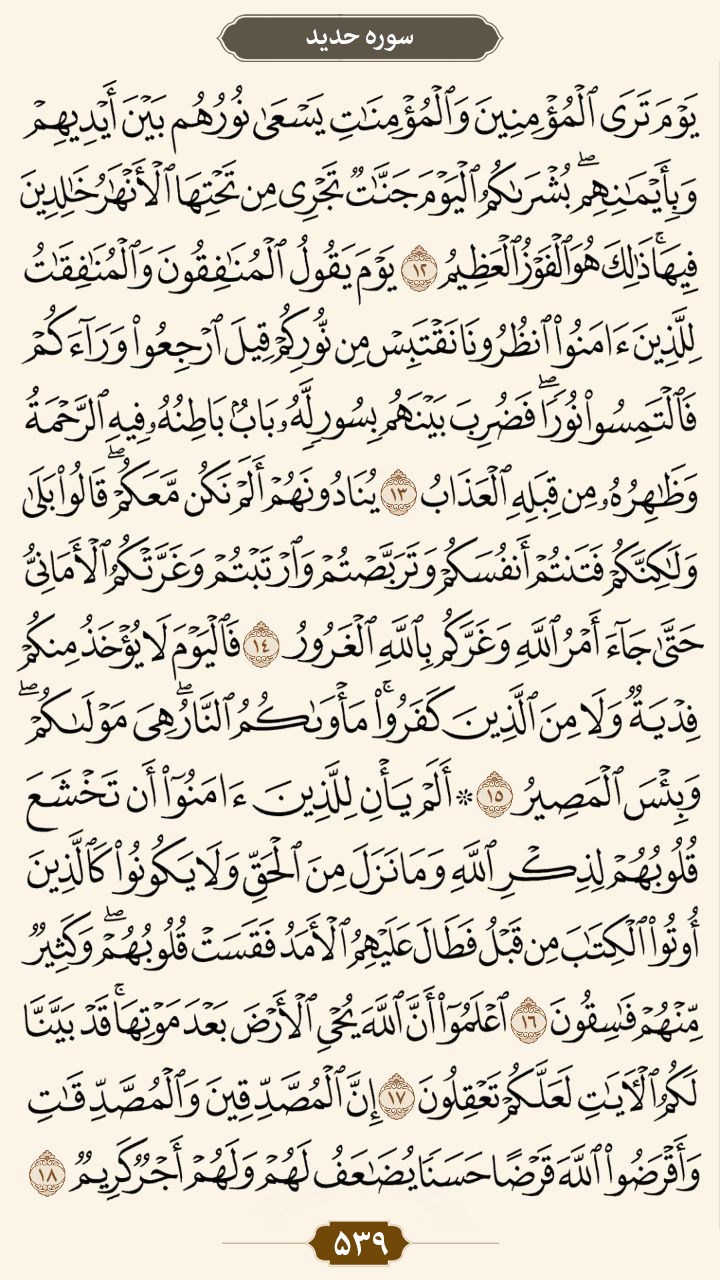 سوره حدید
يَوْمَ تَرَى ٱلْمُؤْمِنِينَ وَٱلْمُؤْمِنَٰتِ يَسْعَىٰ نُورُهُم بَيْنَ أَيْدِيهِمْ
وَبِأَيْمَٰنِهِمۖ بُشْرَىٰكُمُ ٱلْيَوْمَ جَنَّٰتٌ تَجْرِى مِن تَحْتِهَا ٱلْأَنْهَٰرُ خَٰلِدِينَ
فِيهَاۚ ذَٰلِكَ هُوَ ٱلْفَوْزُ ٱلْعَظِيمُ ١٢ يَوْمَ يَقُولُ ٱلْمُنَٰفِقُونَ وَٱلْمُنَٰفِقَٰتُ
لِلَّذِينَ ءَامَنُوا۟ ٱنظُرُونَا نَقْتَبِسْ مِن نُّورِكُمْ قِيلَ ٱرْجِعُوا۟ وَرَآءَكُمْ
فَٱلْتَمِسُوا۟ نُورًاۖ فَضُرِبَ بَيْنَهُم بِسُورٍ لَّهُۥ بَابٌۢ بَاطِنُهُۥ فِيهِ ٱلرَّحْمَةُ
وَظَٰهِرُهُۥ مِن قِبَلِهِ ٱلْعَذَابُ ١٣ يُنَادُونَهُمْ أَلَمْ نَكُن مَّعَكُمْۖ قَالُوا۟ بَلَىٰ
وَلَٰكِنَّكُمْ فَتَنتُمْ أَنفُسَكُمْ وَتَرَبَّصْتُمْ وَٱرْتَبْتُمْ وَغَرَّتْكُمُ ٱلْأَمَانِىُّ
حَتَّىٰ جَآءَ أَمْرُ ٱللَّهِ وَغَرَّكُم بِٱللَّهِ ٱلْغَرُورُ ١٤ فَٱلْيَوْمَ لَا يُؤْخَذُ مِنكُمْ
فِدْيَةٌ وَلَا مِنَ ٱلَّذِينَ كَفَرُوا۟ۚ مَأْوَىٰكُمُ ٱلنَّارُۖ هِىَ مَوْلَىٰكُمْۖ
وَبِئْسَ ٱلْمَصِيرُ ١٥ ۞ أَلَمْ يَأْنِ لِلَّذِينَ ءَامَنُوٓا۟ أَن تَخْشَعَ
قُلُوبُهُمْ لِذِكْرِ ٱللَّهِ وَمَا نَزَلَ مِنَ ٱلْحَقِّ وَلَا يَكُونُوا۟ كَٱلَّذِينَ
أُوتُوا۟ ٱلْكِتَٰبَ مِن قَبْلُ فَطَالَ عَلَيْهِمُ ٱلْأَمَدُ فَقَسَتْ قُلُوبُهُمْۖ وَكَثِيرٌ
مِّنْهُمْ فَٰسِقُونَ ١٦ ٱعْلَمُوٓا۟ أَنَّ ٱللَّهَ يُحْىِ ٱلْأَرْضَ بَعْدَ مَوْتِهَاۚ قَدْ بَيَّنَّا
لَكُمُ ٱلْءَايَٰتِ لَعَلَّكُمْ تَعْقِلُونَ ١٧ إِنَّ ٱلْمُصَّدِّقِينَ وَٱلْمُصَّدِّقَٰتِ
وَأَقْرَضُوا۟ ٱللَّهَ قَرْضًا حَسَنًا يُضَٰعَفُ لَهُمْ وَلَهُمْ أَجْرٌ كَرِيمٌ ١٨
۵۳۹